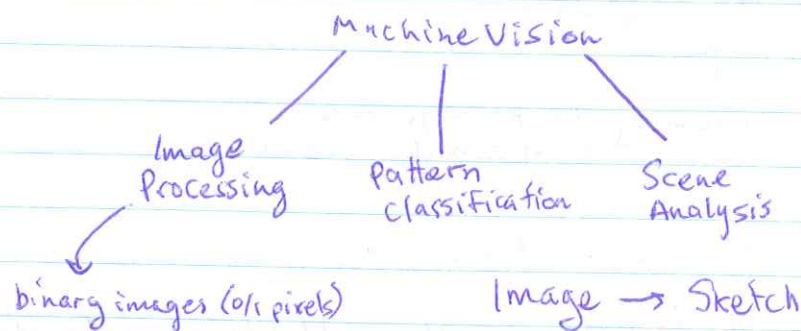 Machine Vision
Image
Processing
Pattern
Classification
Scene
Analysis
binary images (0/1 pixels)
Image → Sketch